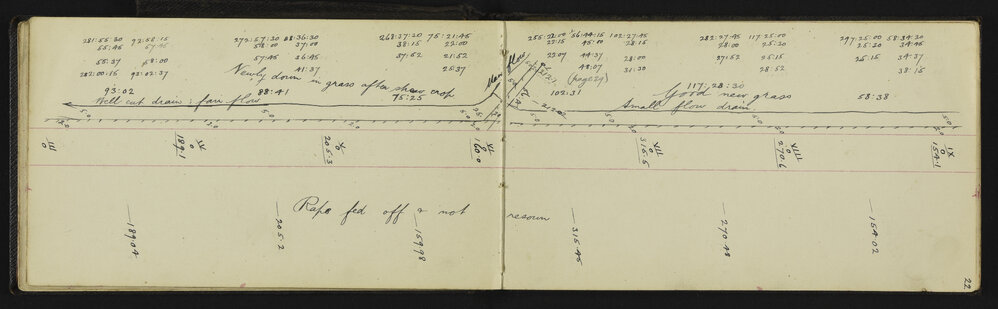 281:55:30 92:58:15 272:57:30 88:36:30 268:37:30 75:21:45
55:45 57:45 58:00 37:00 38:15 22:00
55:37 58:00 57:45 36:45 37:52 21:52
282:00:15 93:02:37 41:37 25:37
Newly down in grass after straw crop
93:02 88:41 75:25
Well cut drain: fair flow
III
0
IV
0
189.1
V
0
205.3
VI
0
160.0
Rape fed off & not resown
189.04
205.2
159.98
255:22:00 56:44:15 102:27:45 282:27:45 117:25:00 297:25:00 58:34:30
22:15 45:00 28:15 28:00 25:30 25:30 34:45
22:07 44:37 28:00 37:52 25:15 25:15 34:37
48:07 31:30 28:52 38:15
(page 24)
102:31 117:28:30 58:38
Good new grass
Small flow drain
315.5
VIII
0
270.6
IX
0
154.1
315.45
270.48
154.02
22